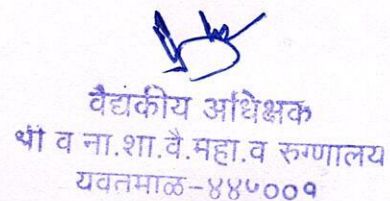 वैद्यकीय अधिक्षक
श्री व ना.शा.वै.महा.व रुग्णालय
यवतमाळ-४४५००१